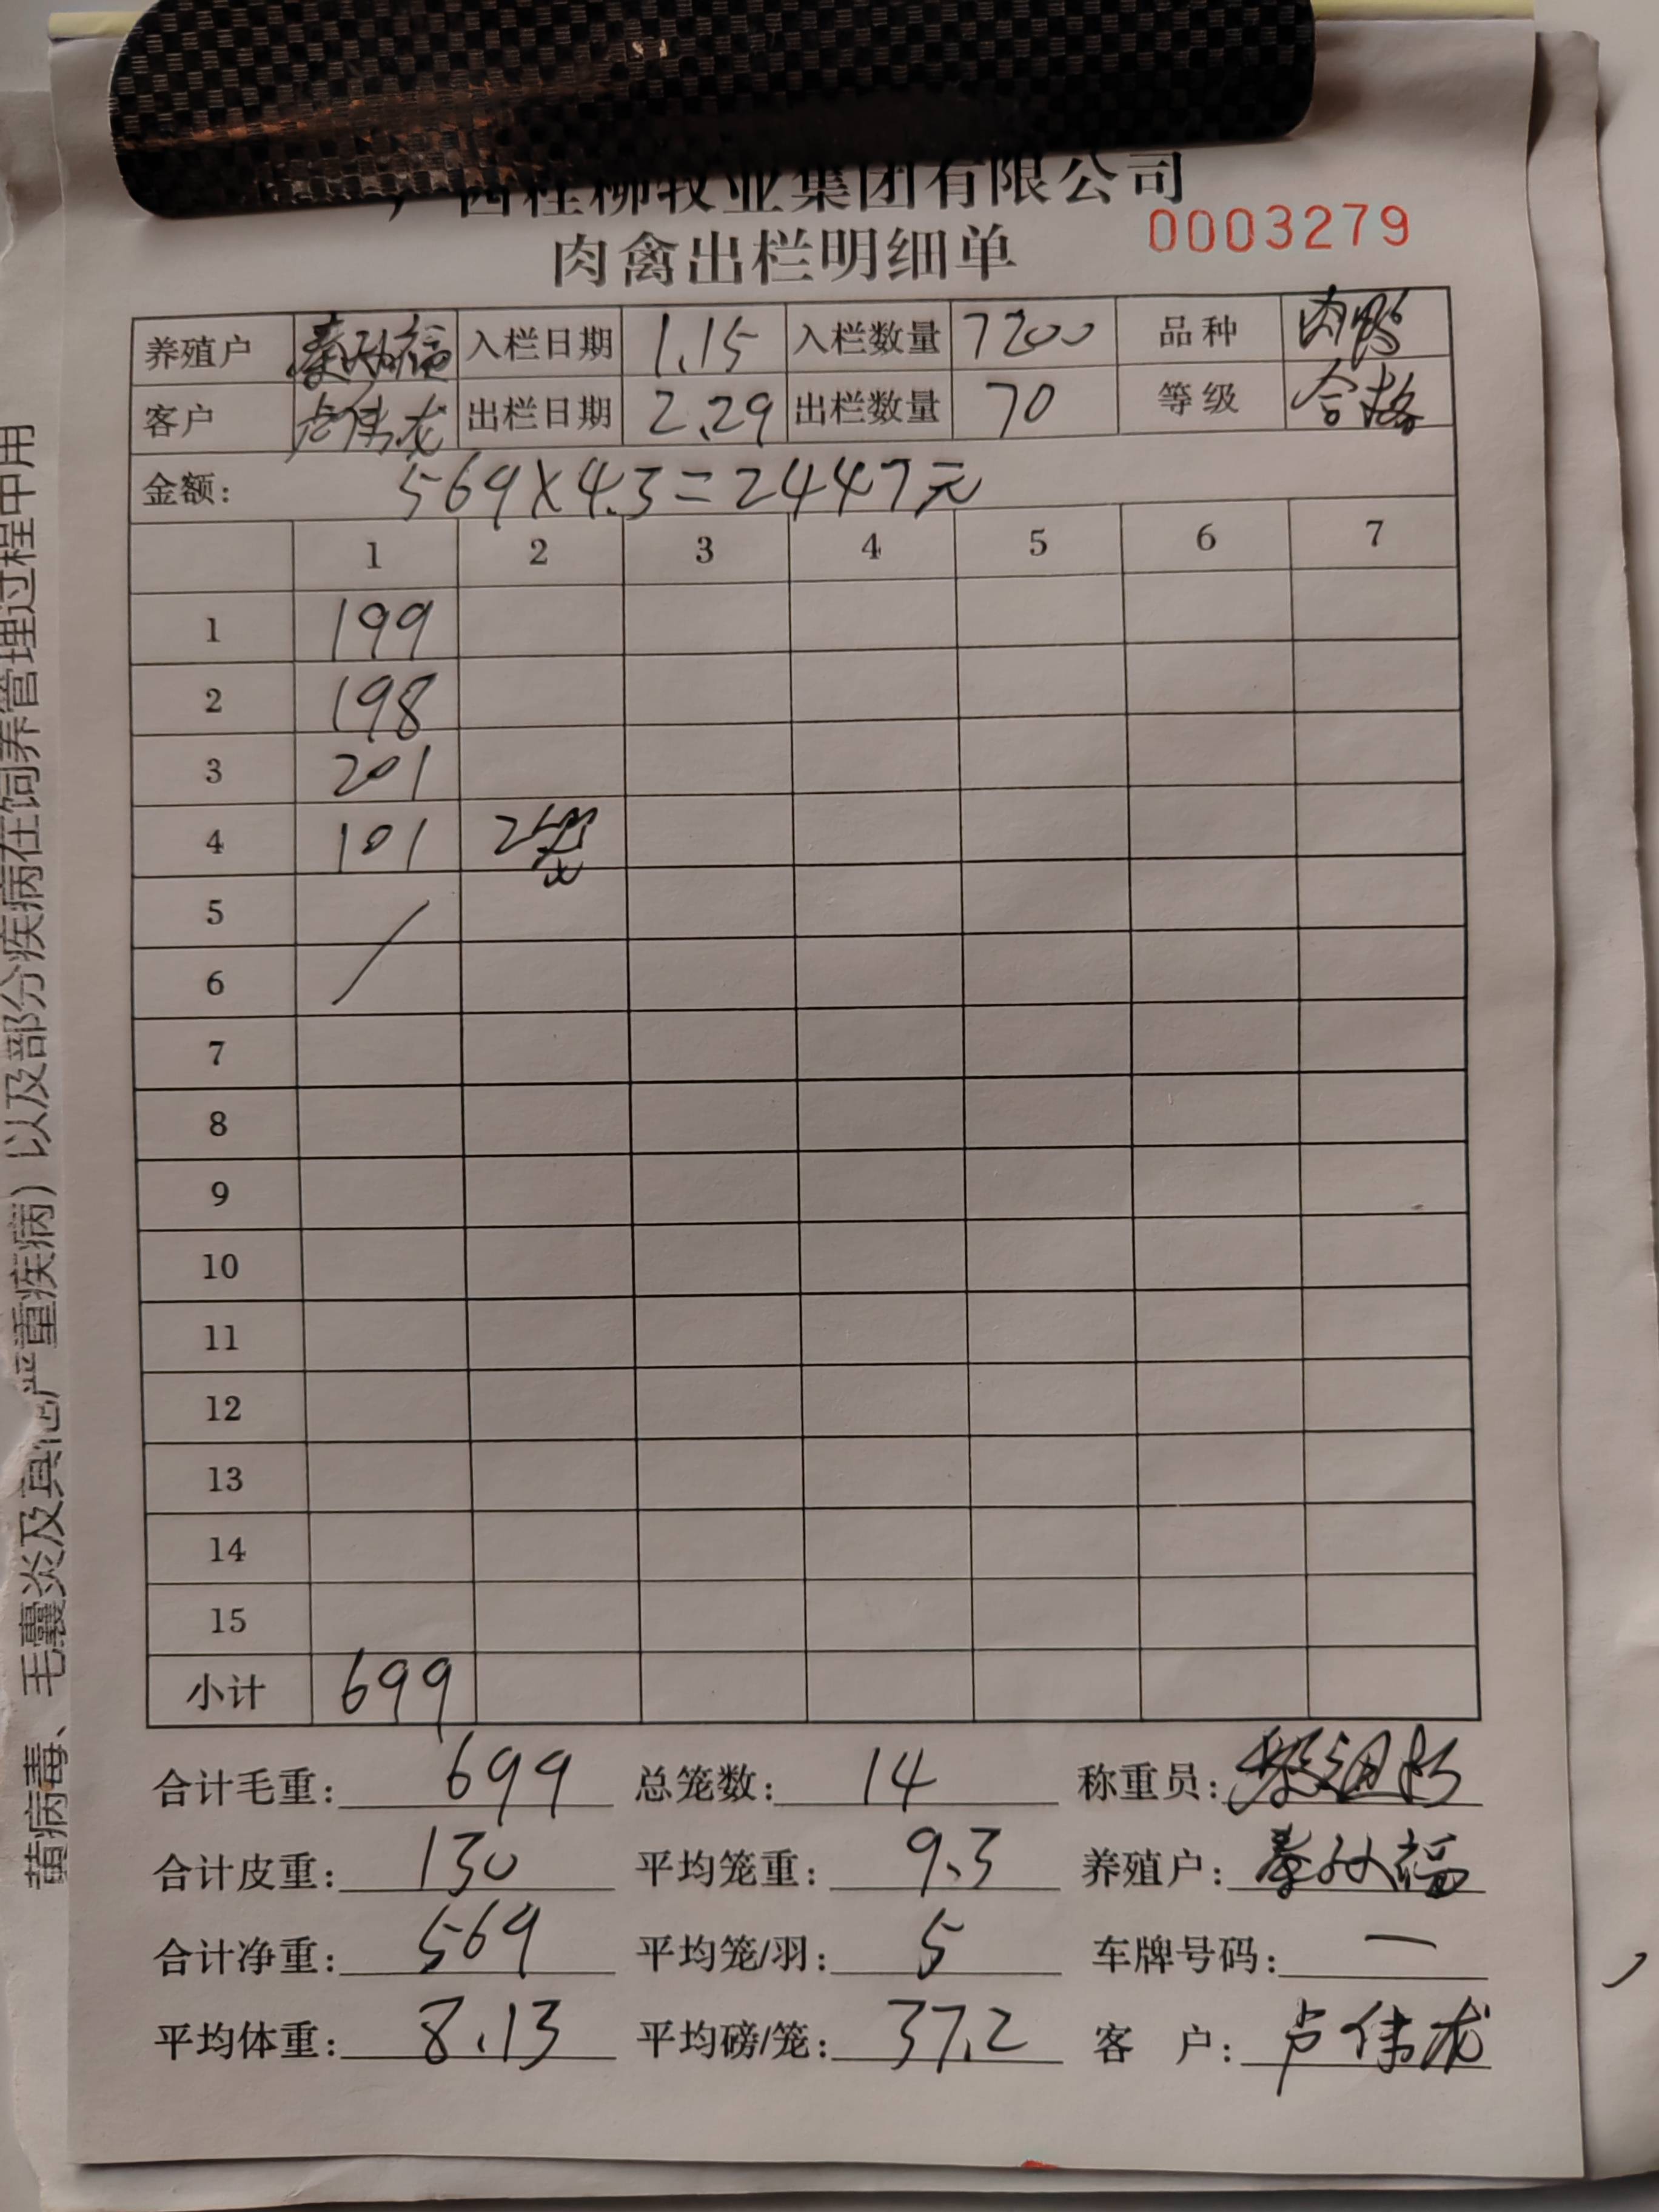 广西桂柳牧业集团有限公司
肉禽出栏明细单 0003279
养殖户 秦孙福 入栏日期 1.15 入栏数量 7200 品种 肉鸭
客户 卢伟龙 出栏日期 2.29 出栏数量 70 等级 合格
金额: 569×4.3=2447元
1 2 3 4 5 6 7
1 199
2 198
3 201
4 101 2
5
6
7
8
9
10
11
12
13
14
15
小计 699
合计毛重: 699 总笼数: 14 称重员:
合计皮重: 130 平均笼重: 9.3 养殖户: 秦孙福
合计净重: 569 平均笼/羽: 5 车牌号码: 一
平均体重: 8.13 平均磅/笼: 37.2 客 户: 卢伟龙
黄病毒、毛囊炎及其他严重疾病）以及部分疾病在饲养管理过程中用